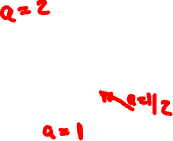 a = 2
a = 1/2
a = 1